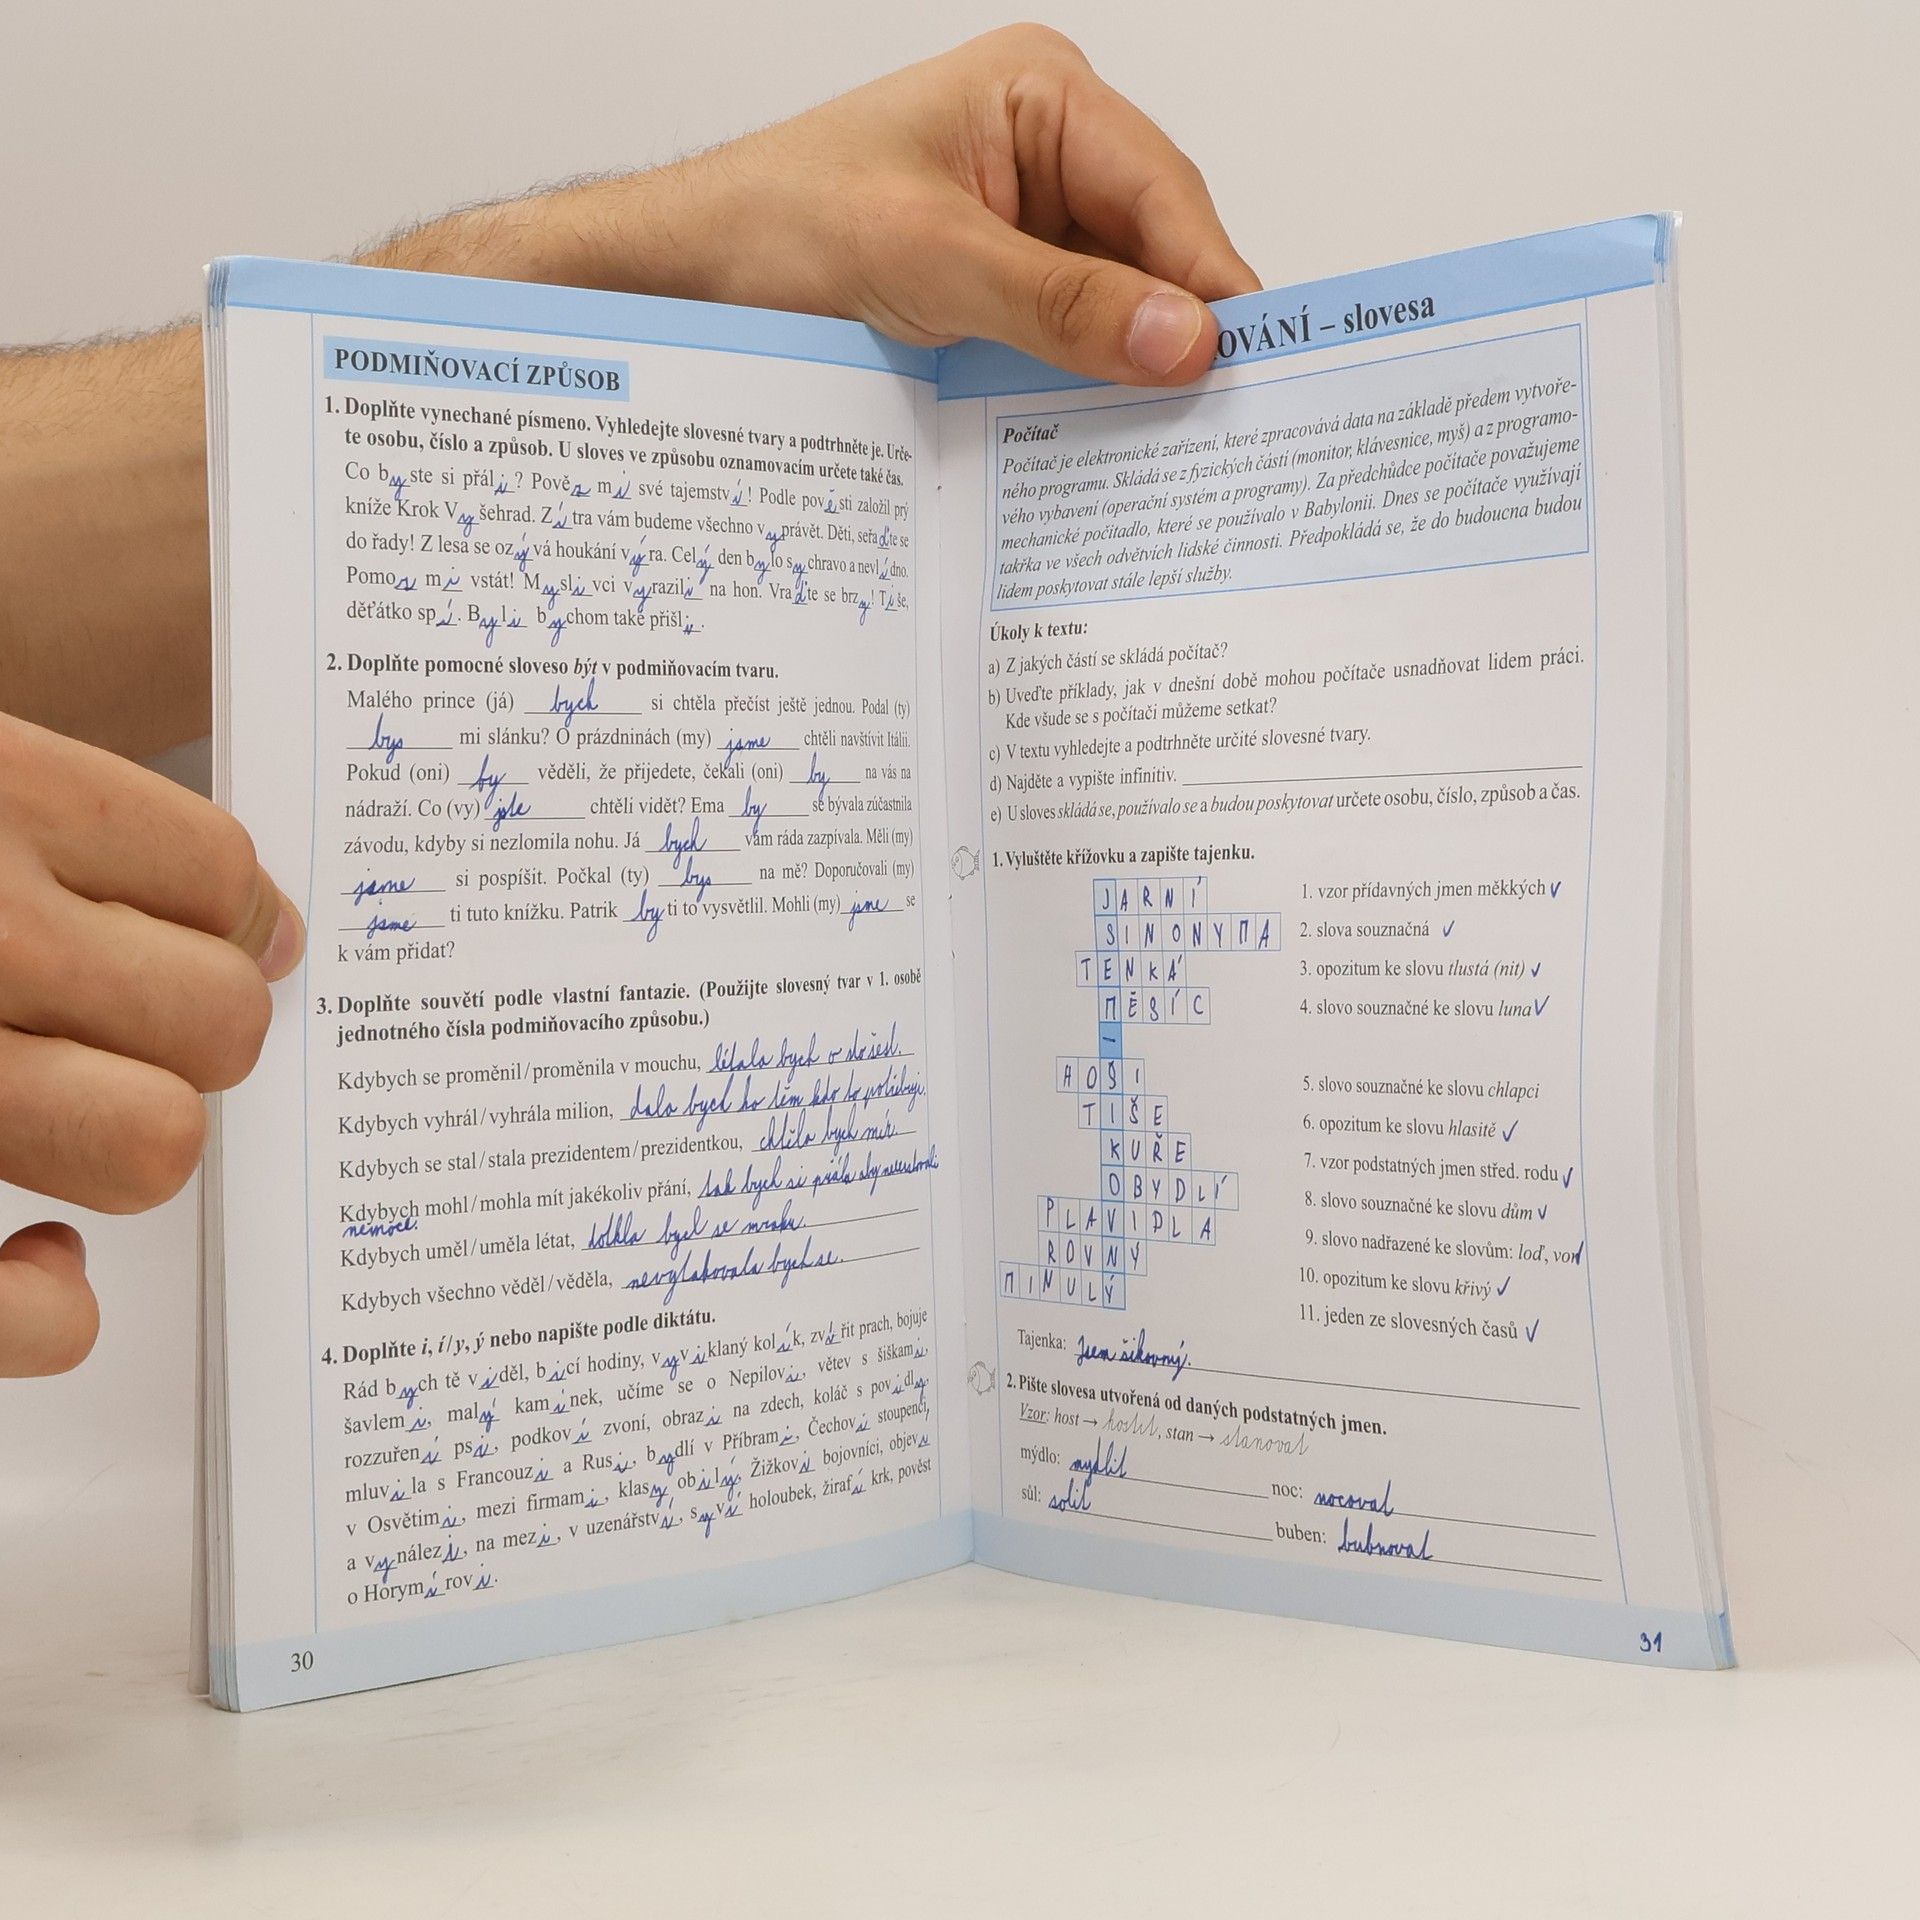 PODMIŇOVACÍ ZPŮSOB
1. Doplňte vynechané písmeno. Vyhledejte slovesné tvary a podtrhněte je. Urče-
te osobu, číslo a způsob. U sloves ve způsobu oznamovacím určete také čas.
Co byste si přáli? Pověz mi své tajemství! Podle pověsti založil prý
kníže Krok Vyšehrad. Zítra vám budeme všechno vyprávět. Děti, seřaďte se
do řady! Z lesa se ozývá houkání výra. Celý den bylo sychravo a nevlídno.
Pomoz mi vstát! Myslivci vyrazili na hon. Vraďte se brzy! Tiše,
děťátko spí. Byli bychom také přišli.
2. Doplňte pomocné sloveso být v podmiňovacím tvaru.
Malého prince (já) bych si chtěla přečíst ještě jednou. Podal (ty)
bys mi slánku? O prázdninách (my) jsme chtěli navštívit Itálii.
Pokud (oni) by věděli, že přijedete, čekali (oni) by na vás na
nádraží. Co (vy) jste chtěli vidět? Ema by se bývala zúčastnila
závodu, kdyby si nezlomila nohu. Já bych vám ráda zazpívala. Měli (my)
jsme si pospíšit. Počkal (ty) bys na mě? Doporučovali (my)
jsme ti tuto knížku. Patrik by ti to vysvětlil. Mohli (my) jsme se
k vám přidat?
3. Doplňte souvětí podle vlastní fantazie. (Použijte slovesný tvar v 1. osobě
jednotného čísla podmiňovacího způsobu.)
Kdybych se proměnil/proměnila v mouchu, létala bych o
Kdybych vyhrál/vyhrála milion, dala bych ho těm kdo to potřebují.
Kdybych se stal/stala prezidentem/prezidentkou, chtěla bych mír.
Kdybych mohl/mohla mít jakékoliv přání, tak bych si přála aby neexistovali
nemoce.
Kdybych uměl/uměla létat, dotkla bych se mraku.
Kdybych všechno věděl/věděla, nevytahovala bych se.
4. Doplňte i, í/y, ý nebo napište podle diktátu.
Rád bych tě viděl, bicí hodiny, vyviklaný kolík, zvířit prach, bojuje
šavlemi, malý kamínek, učíme se o Nepilovi, větev s šiškami,
rozzuření psi, podkovi zvoní, obrazi na zdech, koláč s povidly,
mluvila s Francouzi a Rusi, bydlí v Příbrami, Čechovi stoupenci,
v Osvětimi, mezi firmami, klasy obilý, Žižkovi bojovníci, objevi
a vynálezi, na mezi, v uzenářství, syví holoubek, žirafí krk, pověst
o Horymírovi.
30
OVÁNÍ – slovesa
Počítač
Počítač je elektronické zařízení, které zpracovává data na základě předem vytvoře-
ného programu. Skládá se z fyzických částí (monitor, klávesnice, myš) a z programo-
vého vybavení (operační systém a programy). Za předchůdce počítače považujeme
mechanické počitadlo, které se používalo v Babylonii. Dnes se počítače využívají
takřka ve všech odvětvích lidské činnosti. Předpokládá se, že do budoucna budou
lidem poskytovat stále lepší služby.
Úkoly k textu:
a) Z jakých částí se skládá počítač?
b) Uveďte příklady, jak v dnešní době mohou počítače usnadňovat lidem práci.
Kde všude se s počítači můžeme setkat?
c) V textu vyhledejte a podtrhněte určité slovesné tvary.
d) Najděte a vypište infinitiv.
e) U sloves skládá se, používalo se a budou poskytovat určete osobu, číslo, způsob a čas.
1. Vyluštěte křížovku a zapište tajenku.
JARNÍ 1. vzor přídavných jmen měkkých ✓
SINONYMA 2. slova souznačná ✓
TENKÁ 3. opozitum ke slovu tlustá (nit) ✓
MĚSÍC 4. slovo souznačné ke slovu luna ✓
–
HOŠI 5. slovo souznačné ke slovu chlapci
TIŠE 6. opozitum ke slovu hlasitě ✓
KUŘE 7. vzor podstatných jmen střed. rodu ✓
OBYDLÍ 8. slovo souznačné ke slovu dům ✓
PLAVIDLA 9. slovo nadřazené ke slovům: loď, vor ✓
ROVNÝ 10. opozitum ke slovu křivý ✓
MINULÝ 11. jeden ze slovesných časů ✓
Tajenka: Jsem šikovný.
2. Pište slovesa utvořená od daných podstatných jmen.
Vzor: host → hostit, stan → stanovat
mýdlo: mydlit noc: nocovat
sůl: solit buben: bubnovat
31